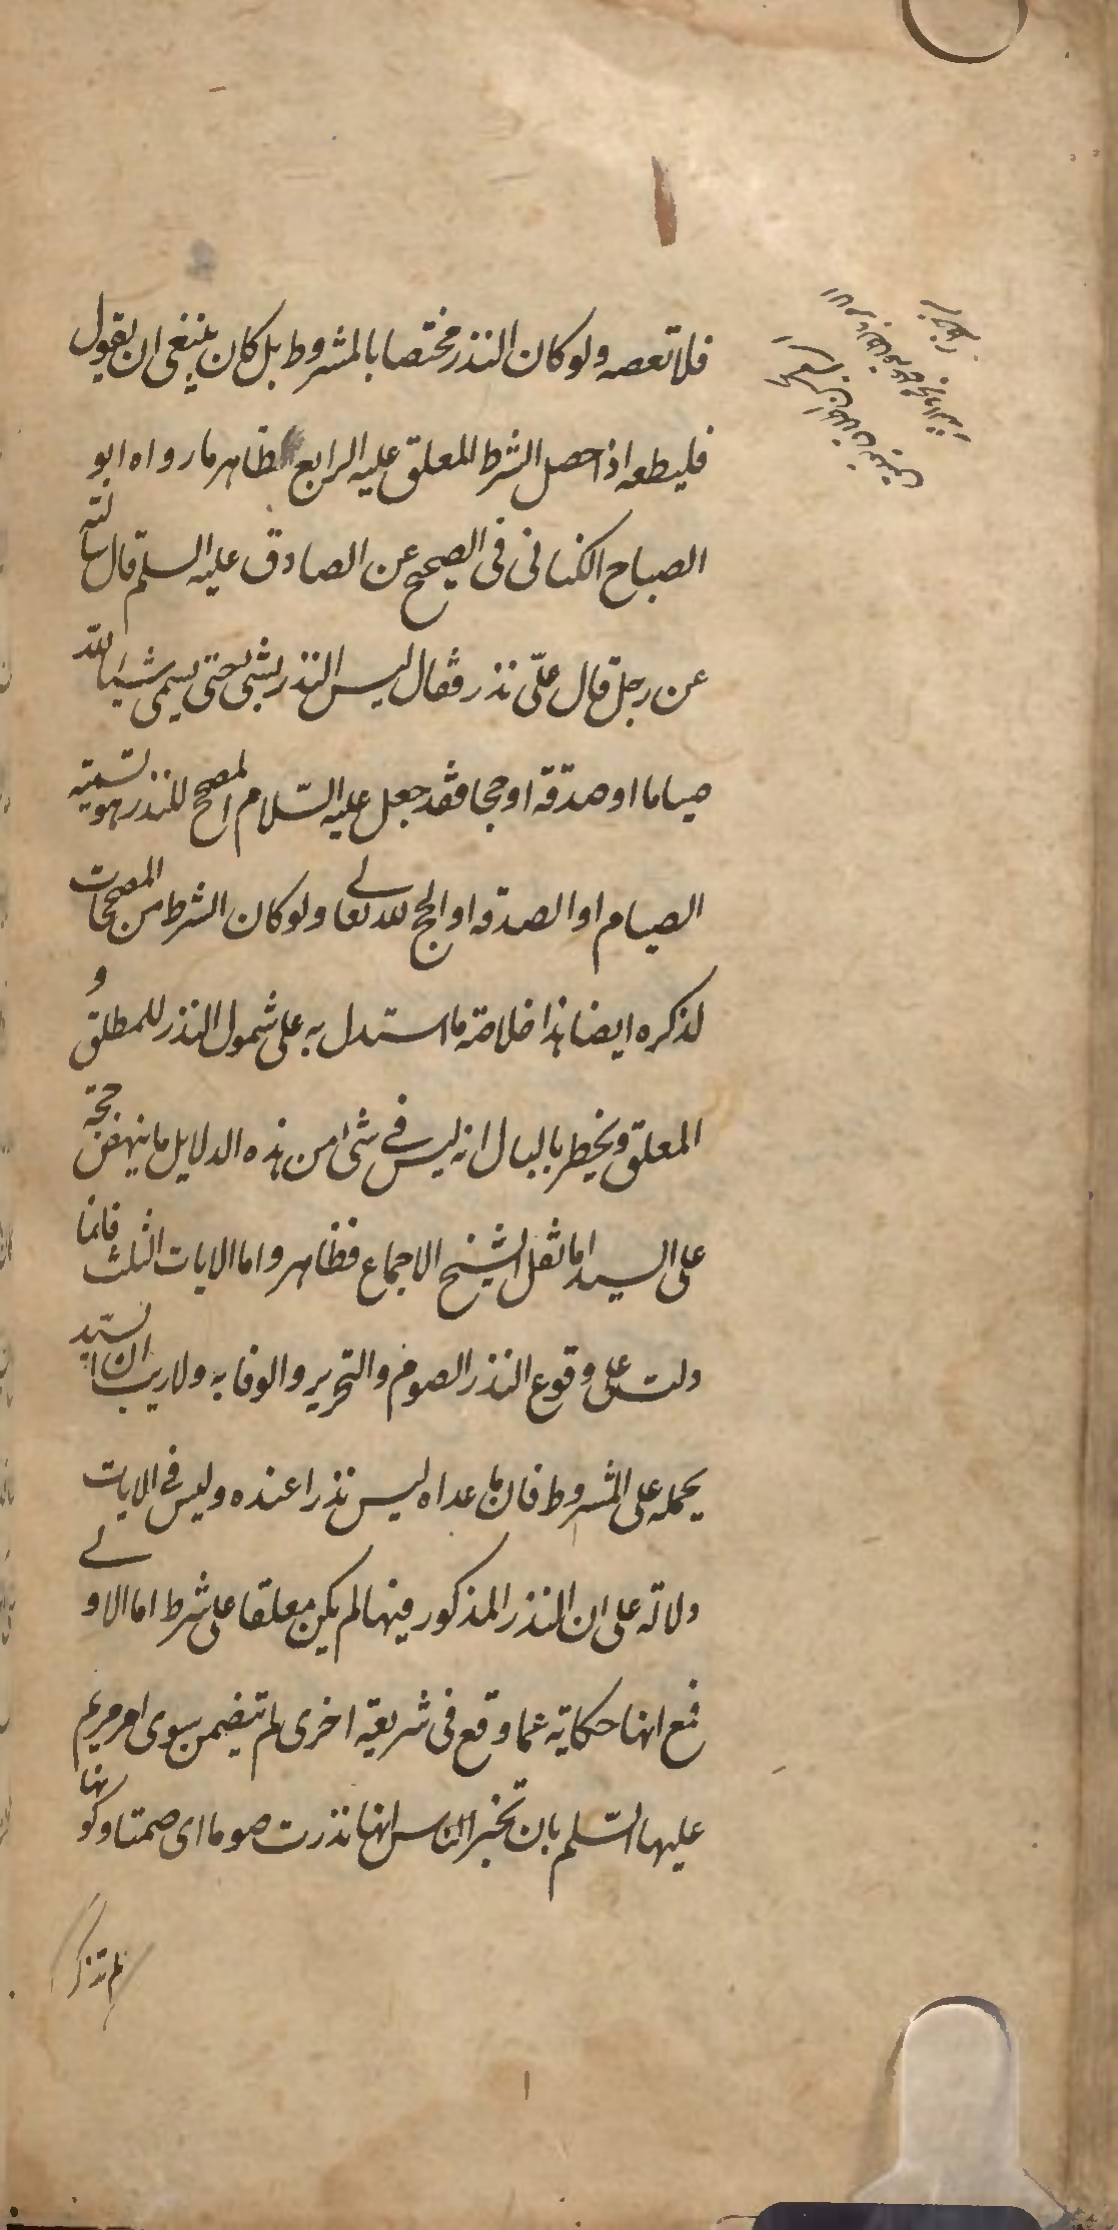 فلا تعصه ولو كان النذر مختصا بالمشروط بل كان ينبغى ان يقول
فليطعه اذا حصل الشرط المعلق عليه الرابع ظاهر ما رواه ابو
الصباح الكنانى فى الصحيح عن الصادق عليه السلم قال سالته
عن رجل قال علىّ نذر فقال ليس النذر بشى حتى يسمى شيئا لله
صياما او صدقة او حجا فقد جعل عليه السّلام المصحح للنذر هو تسمية
الصيام او الصدقه او الحج لله تعالى ولو كان الشرط من المصححات
لذكره ايضا هذا خلاصة ما استدل به على شمول النذر للمطلق و
المعلق ويخطر بالبال انه ليس فى شئ من هذه الدلايل ما ينهض حجة
على السيد اما نقل الشيخ الاجماع فظاهر واما الايات الثلث فانما
دلت على وقوع النذر الصوم والتحرير والوفا به ولا ريب ان السيّد
يحمله على المشروط فان ما عداه ليس نذرا عنده وليس فى الايات
دلالة على ان النذر المذكور فيها لم يكن معلقا على شرط اما الاولى
فمع انها حكاية عما وقع فى شريعة اخرى لم تتضمن سوى امر مريم
عليها السّلم بان تخبر الناس انها نذرت صوما اى صمتا وكونها
لم تذكر